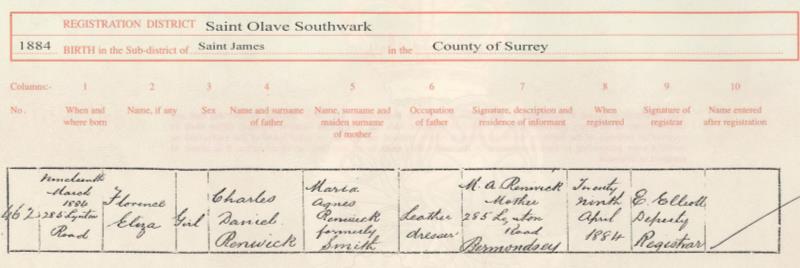 REGISTRATION DISTRICT Saint Olave Southwark
1884 BIRTH in the Sub-district of Saint James in the County of Surrey
Columns:- 1 2 3 4 5 6 7 8 9 10
No. When and where born Name, if any Sex Name and surname of father Name, surname and maiden surname of mother Occupation of father Signature, description and residence of informant When registered Signature of registrar Name entered after registration
462
Nineteenth
March
1884
285 Lynton
Road
Florence
Eliza
Girl
Charles
Daniel
Renwick
Maria
Agnes
Renwick
formerly
Smith
Leather
dresser
M. A. Renwick
Mother
285 Lynton
Road
Bermondsey
Twenty
ninth
April
1884
E. Elliott
Deputy
Registrar